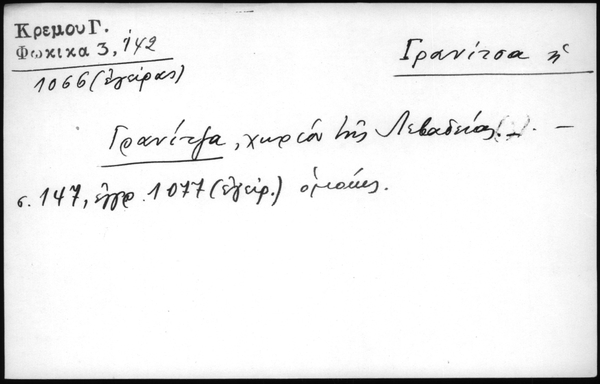 Κρεμου Γ.
Φωκικα 3, 142
Γρανίτσα ἡ
1066 (ἐγείρας)
Γρανίτζα, χωρίον τῆς Λεβαδείας. –
σ. 147, ἔγγρ. 1077 (ἐγείρ.) ὁμοίως.